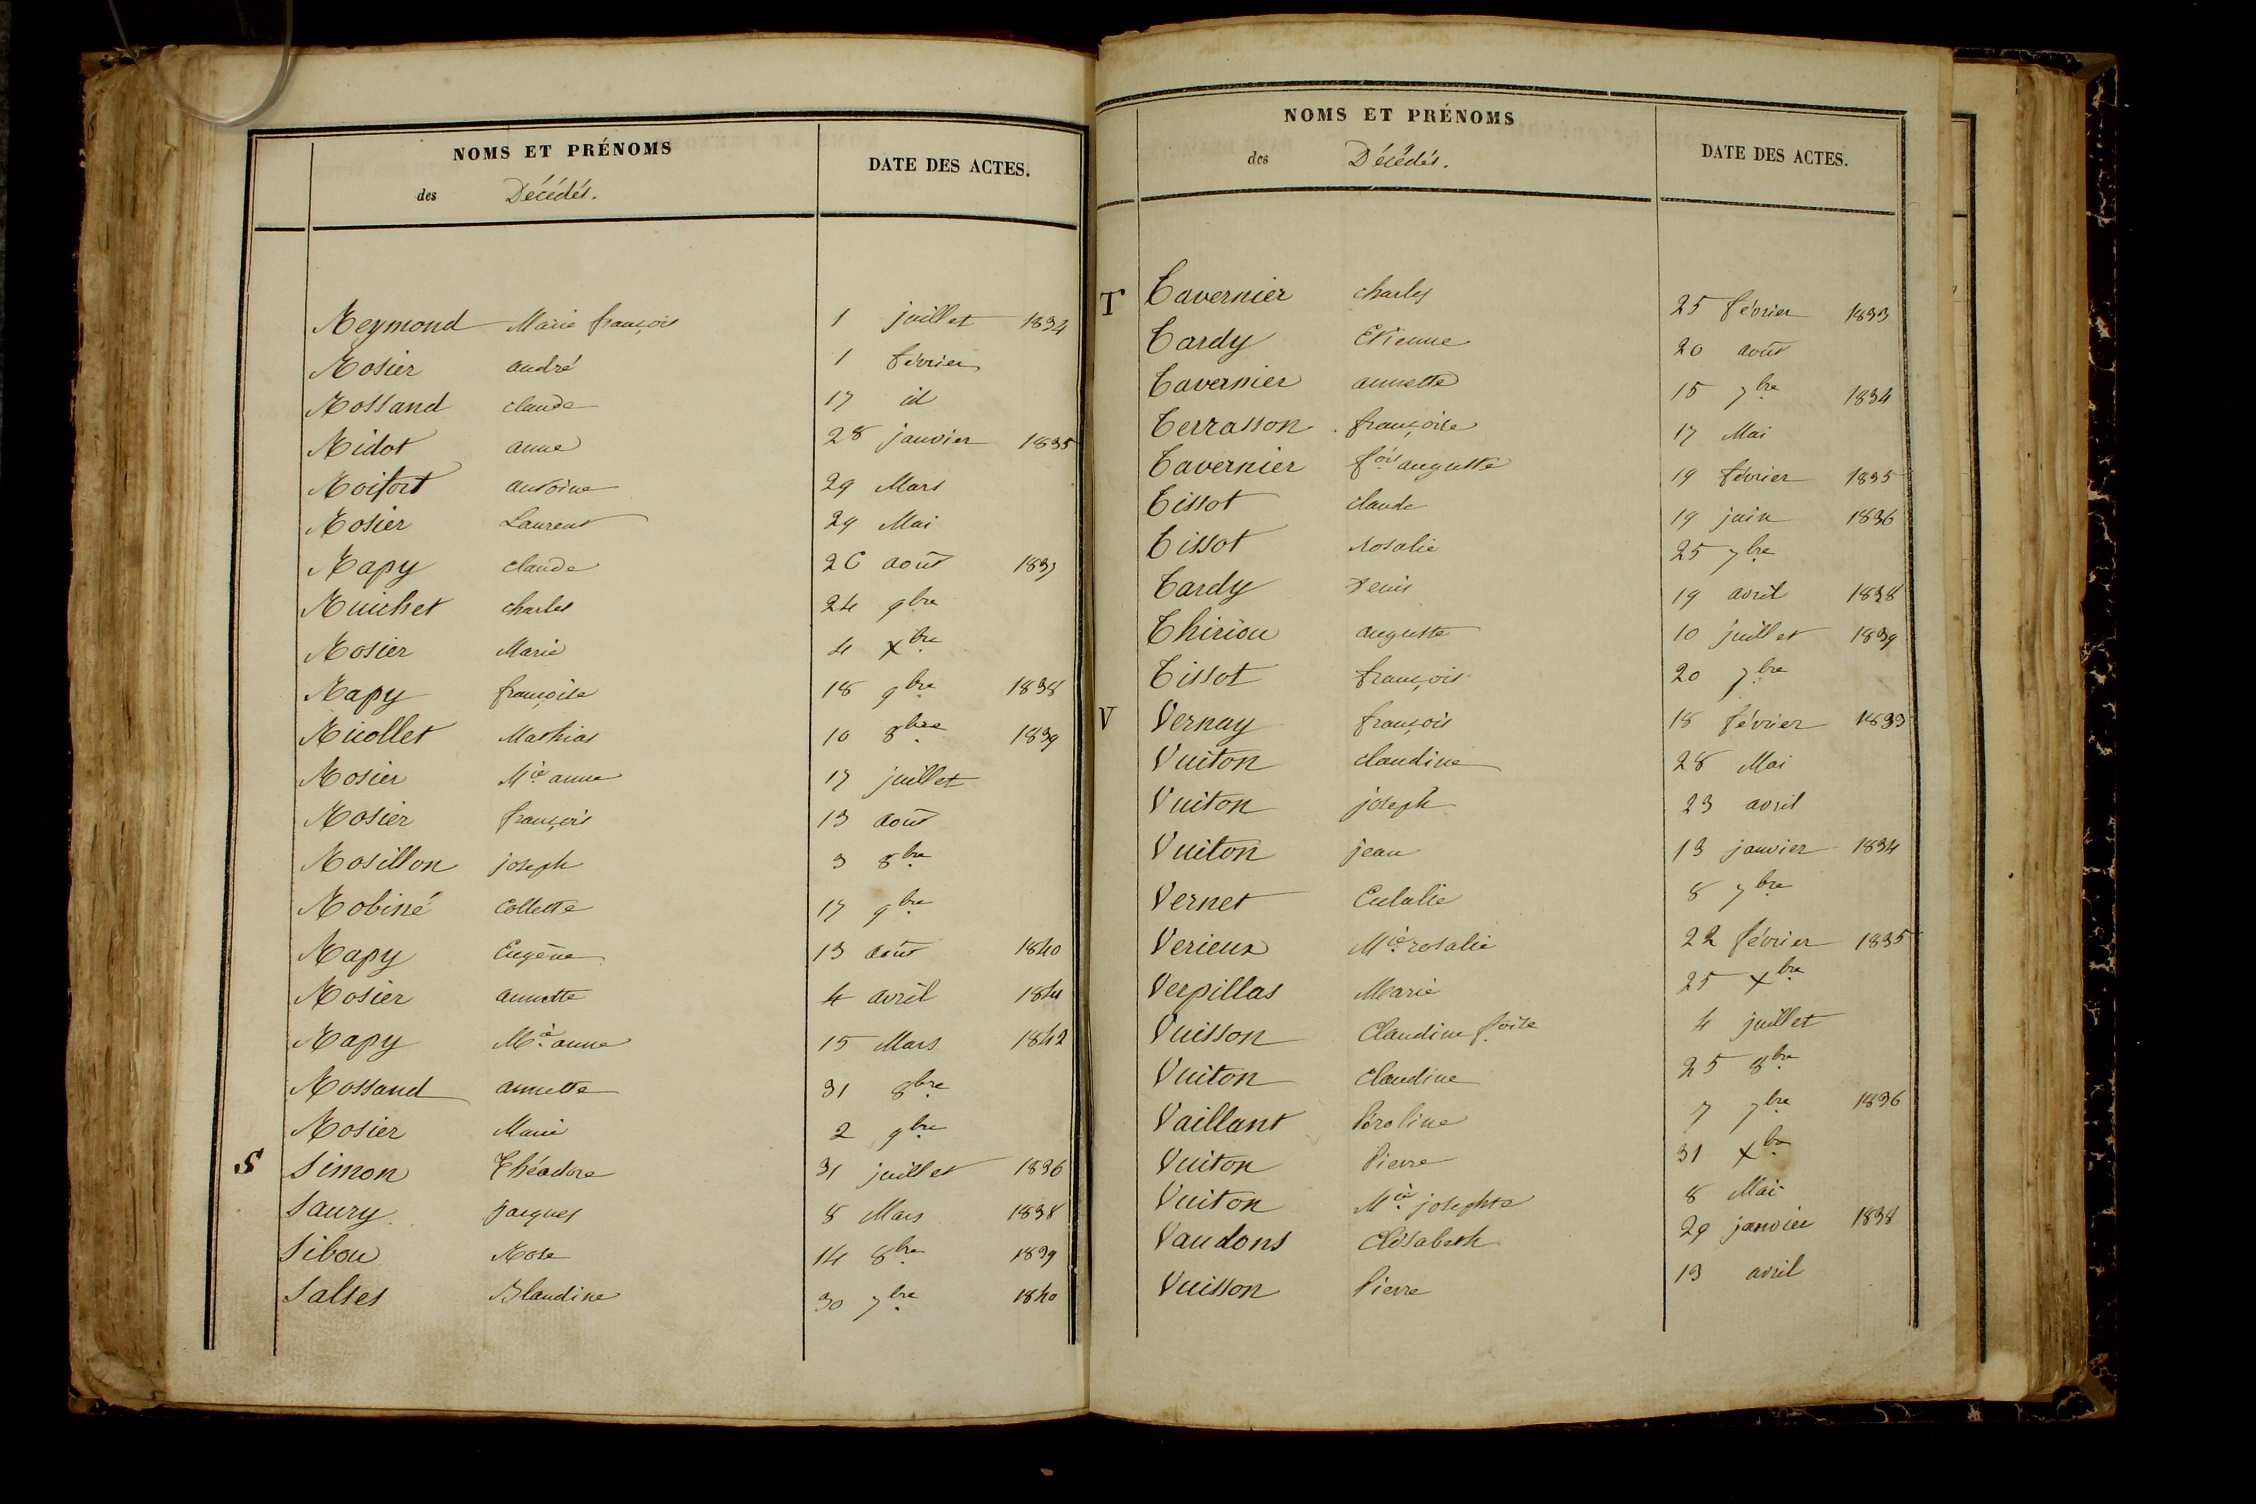 NOMS ET PRÉNOMS
des Décédés.
DATE DES ACTES.
Reymond Marie françois 1 juillet 1834
Rosier andré 1 février
Rossand claude 17 id
Ridot anne 28 janvier 1835
Roifort antoine 29 Mars
Rosier Laurent 29 Mai
Rapy claude 26 août 1837
Ruichet charles 24 9bre
Rosier Marie 4 xbre
Rapy françoise 18 9bre 1838
Ricollet Mathias 10 8bre 1839
Rosier Mie anne 17 juillet
Rosier françois 13 août
Rosillon joseph 3 8bre
Robiné Collette 17 9bre
Rapy Eugène 13 août 1840
Rosier annette 4 avril 1841
Rapy Mie anne 15 Mars 1842
Rossand annette 31 8bre
Rosier Marie 2 9bre
S Simon Théodore 31 juillet 1836
Saury jacques 8 Mars 1838
Sibou Rose 14 8bre 1839
Salses Blandine 30 7bre 1840
NOMS ET PRÉNOMS
des Décédés.
DATE DES ACTES.
T Tavernier charles 25 février 1833
Tardy Etienne 20 août
Tavernier annette 15 7bre 1834
Terrasson françoise 17 Mai
Tavernier fois auguste 19 février 1835
Tissot claude 19 juin 1836
Tissot Rosalie 25 7bre
Tardy Denis 19 avril 1838
Thiriou auguste 10 juillet 1839
Tissot françois 20 7bre
V Vernay françois 18 février 1833
Vuiton claudine 28 Mai
Vuiton joseph 23 avril
Vuiton jean 13 janvier 1834
Vernet Eulalie 8 7bre
Verieux Mie rosalie 22 février 1835
Verpillas Marie 25 xbre
Vuisson Claudine foise 4 juillet
Vuiton Claudine 25 8bre
Vaillant 7 7bre 1836
Vuiton Pierre 31 xbre
Vuiton Mie josephte 8 Mai
Vaudons Elisabeth 29 janvier 1838
Vuisson Pierre 13 avril